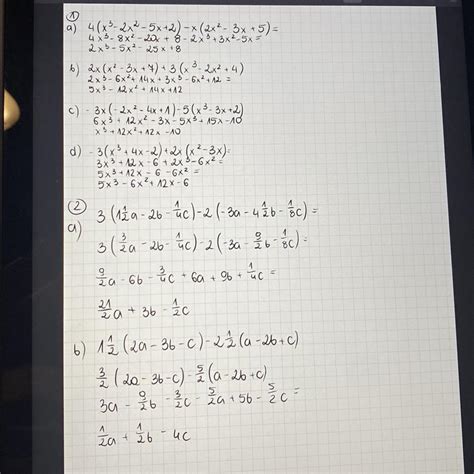 ①
a) 4(x³-2x²-5x+2)-x(2x²-3x+5)=
4x³-8x²-20x+8-2x³+3x²-5x=
2x³-5x²-25x+8
b) 2x(x²-3x+7)+3(x³-2x²+4)
2x³-6x²+14x+3x³-6x²+12=
5x³-12x²+14x+12
c) -3x(-2x²-4x+1)-5(x³-3x+2)
6x³+12x²-3x-5x³+15x-10
x³+12x²+12x-10
d) -3(x³+4x-2)+2x(x²-3x)=
3x³+12x-6+2x³-6x²=
5x³+12x-6-6x²=
5x³-6x²+12x-6
②
a) 3(1½a-2b-¼c)-2(-3a-4½b-⅛c)=
3(3/2a-2b-¼c)-2(-3a-9/2b-⅛c)=
9/2a-6b-¾c+6a+9b+¼c=
21/2a+3b-½c
b) 1½(2a-3b-c)-2½(a-2b+c)
3/2(2a-3b-c)-5/2(a-2b+c)
3a-9/2b-3/2c-5/2a+5b-5/2c=
½a+½b-4c